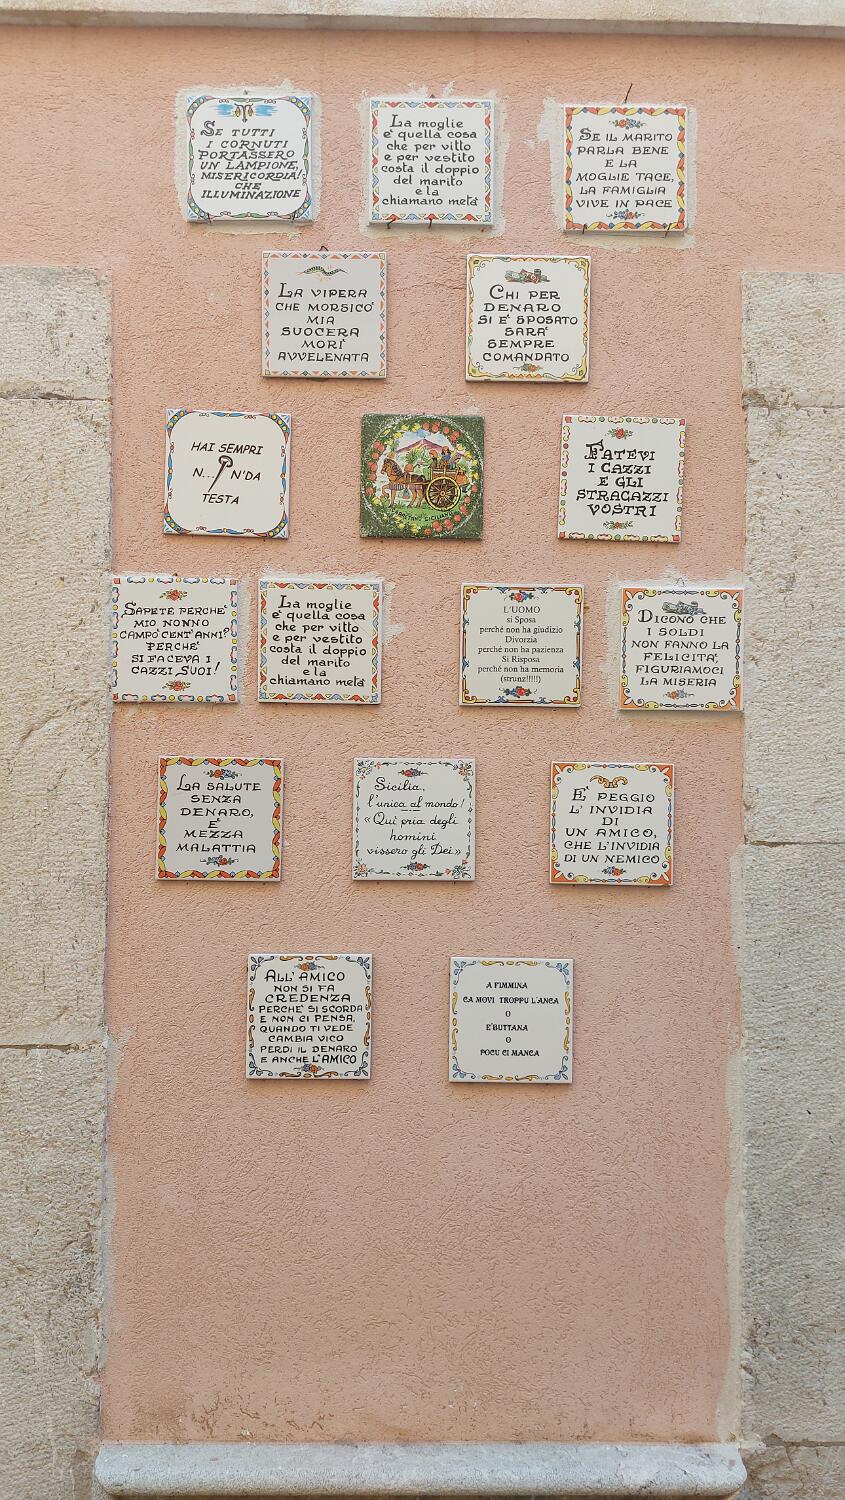 SE TUTTI
I CORNUTI
PORTASSERO
UN LAMPIONE,
MISERICORDIA!
CHE
ILLUMINAZIONE
La moglie
e' quella cosa
che per vitto
e per vestito
costa il doppio
del marito
e la
chiamano metà
SE IL MARITO
PARLA BENE
E LA
MOGLIE TACE,
LA FAMIGLIA
VIVE IN PACE
LA VIPERA
CHE MORSICO'
MIA
SUOCERA
MORI'
AVVELENATA
CHI PER
DENARO
SI E' SPOSATO
SARA'
SEMPRE
COMANDATO
HAI SEMPRI
N... N'DA
TESTA
CARRETTINO SICILIANO
FATEVI
I CAZZI
E GLI
STRACAZZI
VOSTRI
SAPETE PERCHE'
MIO NONNO
CAMPO' CENT'ANNI?
PERCHE'
SI FACEVA I
CAZZI SUOI!
La moglie
e' quella cosa
che per vitto
e per vestito
costa il doppio
del marito
e la
chiamano metà
L'UOMO
si Sposa
perché non ha giudizio
Divorzia
perché non ha pazienza
Si Risposa
perché non ha memoria
(strunz!!!!!)
DICONO CHE
I SOLDI
NON FANNO LA
FELICITA',
FIGURIAMOCI
LA MISERIA
LA SALUTE
SENZA
DENARO,
E'
MEZZA
MALATTIA
Sicilia,
l'unica al mondo!
«Qui pria degli
homini
vissero gli Dei»
E' PEGGIO
L' INVIDIA
DI
UN AMICO,
CHE L'INVIDIA
DI UN NEMICO
ALL' AMICO
NON SI FA
CREDENZA
PERCHE' SI SCORDA
E NON CI PENSA,
QUANDO TI VEDE
CAMBIA VICO
PERDI IL DENARO
E ANCHE L'AMICO
A FIMMINA
CA MOVI TROPPU L'ANCA
O
E'BUTTANA
O
POCU CI MANCA